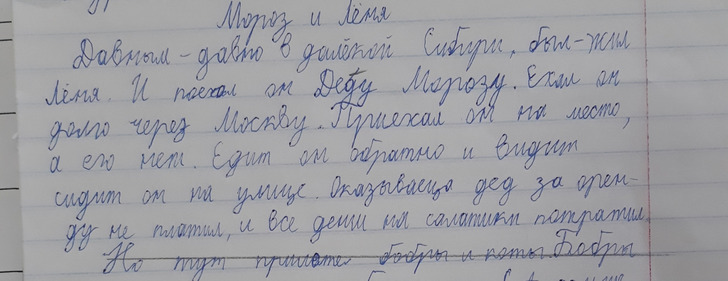 Мороз и Лёня
Давным-давно в далёкой Сибири, был-жил
Лёня. И поехал он Деду Морозу. Ехал он
долго через Москву. Приехал он на место,
а его нет. Едит он обратно и видит
сидит он на улице. Оказываеца дед за арен-
ду не платил, и все деньи на салатики потратил.
Но тут прилотел бобры и коты. Бобры